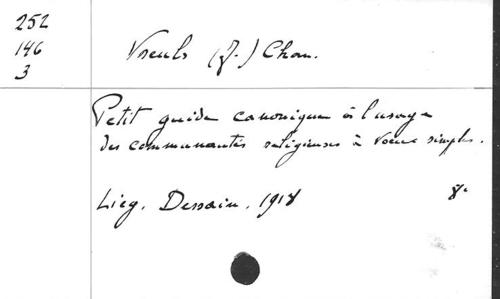 252
146
3
Vreuls (J.) Chan.
Petit guide canonique à l'usage
des communautés religieuses à voeux simples.
Liég. Dessain. 1918 8°